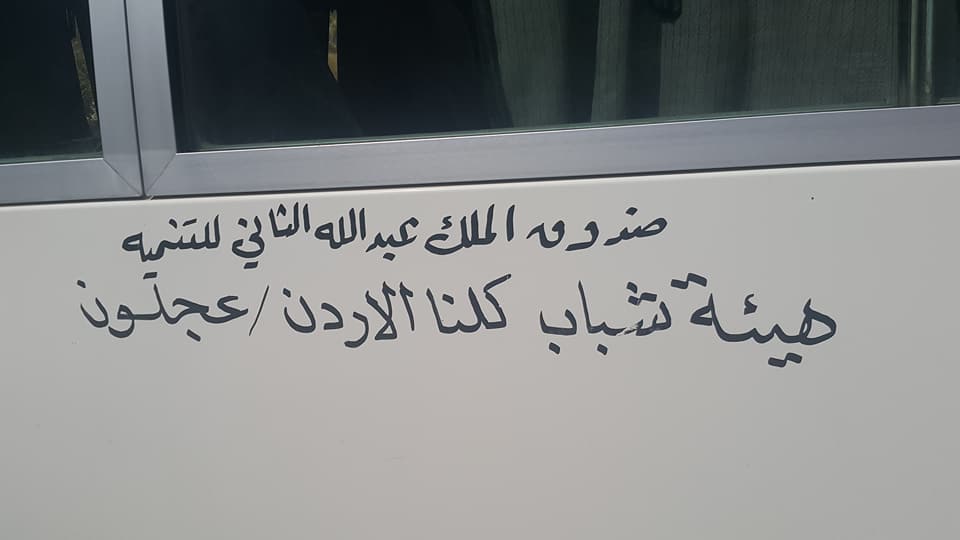 صندوق الملك عبدالله الثاني للتنميه
هيئة شباب كلنا الاردن/عجلون